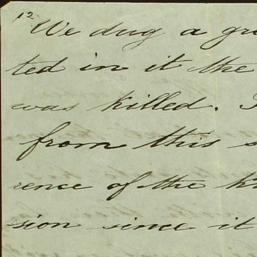 12
We dug a gra
ted in it the
was killed. I
from this s
rence of the tr
sion since it